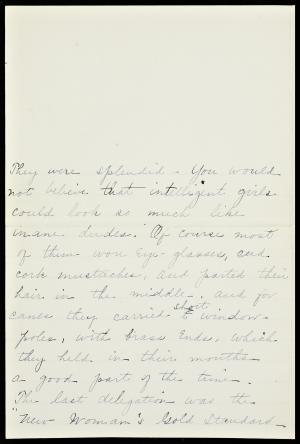 They were splendid - You would
not believe that intelligent girls
could look so much like
inane dudes. Of course most
of them wore eye-glasses, and
cork mustaches, and parted their
hair in the middle - and for
canes they carried short window
poles, with brass ends, which
they held in their mouths
a good part of the time.
The last delegation was the
"New Woman's Gold Standard